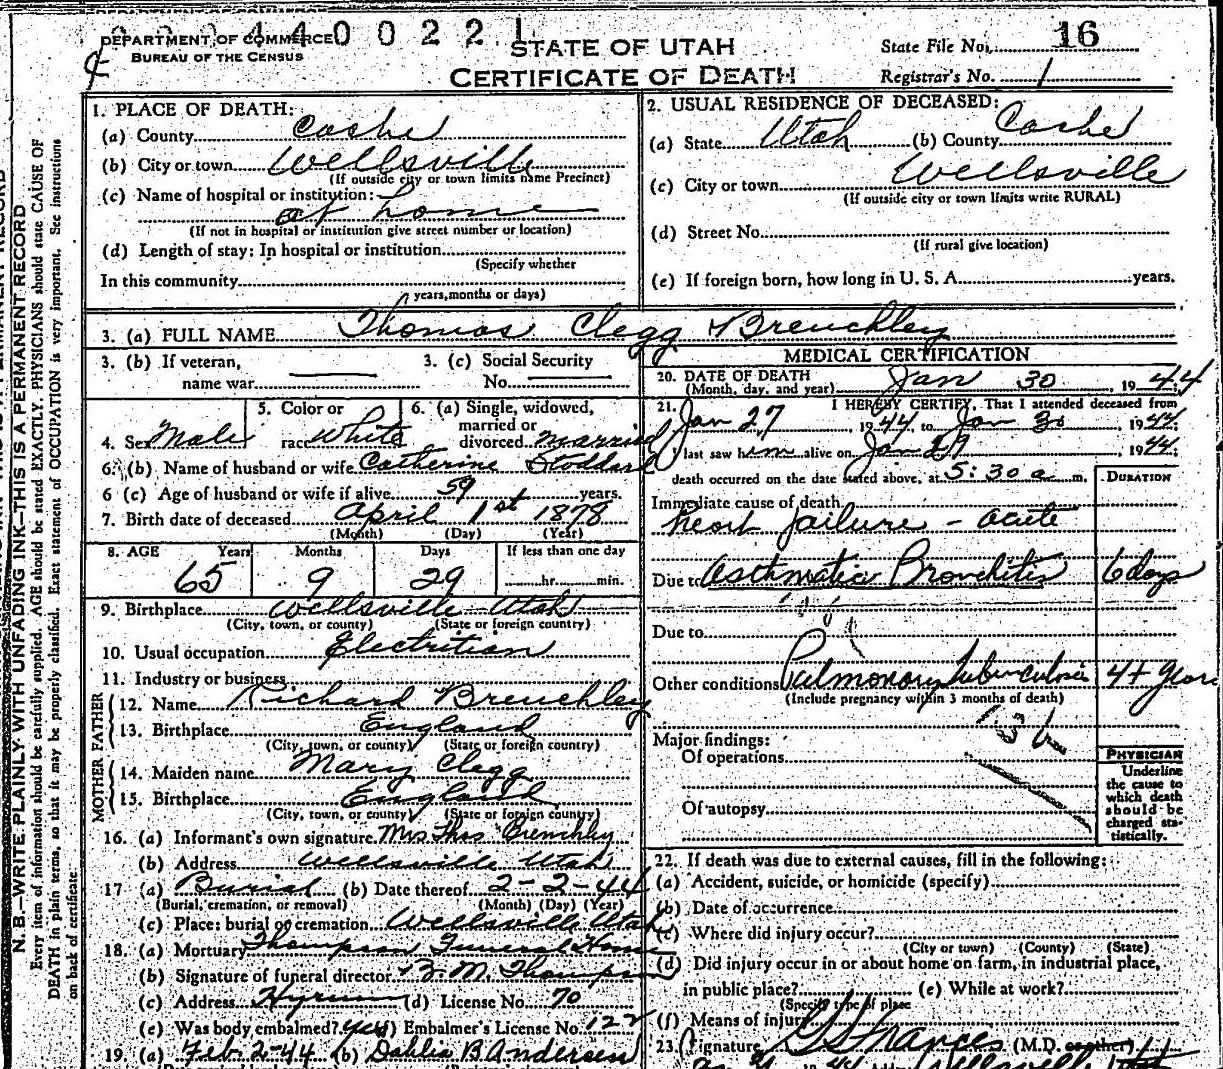 DEPARTMENT OF COMMERCE 4 4 0 0 2 2 1
BUREAU OF THE CENSUS
STATE OF UTAH
CERTIFICATE OF DEATH
State File No. 16
Registrar's No. 1
N. B.—WRITE PLAINLY WITH UNFADING INK—THIS IS A PERMANENT RECORD
Every item of information should be carefully supplied. AGE should be stated EXACTLY. PHYSICIANS should state CAUSE OF
DEATH in plain terms, so that it may be properly classified. Exact statement of OCCUPATION is very important. See instructions
on back of certificate
1. PLACE OF DEATH:
(a) County Cache
(b) City or town Wellsville
(If outside city or town limits name Precinct)
(c) Name of hospital or institution:
at home
(If not in hospital or institution give street number or location)
(d) Length of stay: In hospital or institution
(Specify whether
In this community
years, months or days)
2. USUAL RESIDENCE OF DECEASED:
(a) State Utah (b) County Cache
(c) City or town Wellsville
(If outside city or town limits write RURAL)
(d) Street No.
(If rural give location)
(e) If foreign born, how long in U. S. A. years.
3. (a) FULL NAME Thomas Clegg Brenchley
3. (b) If veteran,
name war
3. (c) Social Security
No.
4. Sex Male
5. Color or
race White
6. (a) Single, widowed,
married or
divorced married
6 (b) Name of husband or wife Catherine Stoddard
6 (c) Age of husband or wife if alive 59 years.
7. Birth date of deceased April 1st 1878
(Month) (Day) (Year)
8. AGE Years Months Days If less than one day
65 9 29 hr. min.
9. Birthplace Wellsville Utah
(City, town, or county) (State or foreign country)
10. Usual occupation Electritian
11. Industry or business
FATHER
12. Name Richard Brenchley
13. Birthplace England
(City, town, or county) (State or foreign country)
MOTHER
14. Maiden name Mary Clegg
15. Birthplace England
(City, town, or county) (State or foreign country)
16. (a) Informant's own signature Mrs Thos Brenchley
(b) Address Wellsville Utah
17 (a) Burial (b) Date thereof 2-2-44
(Burial, cremation, or removal) (Month) (Day) (Year)
(c) Place: burial or cremation Wellsville Utah
18. (a) Mortuary Thompson Funeral Home
(b) Signature of funeral director B. M. Thompson
(c) Address Hyrum (d) License No. 70
(e) Was body embalmed? yes (f) Embalmer's License No. 122
19. (a) Feb 2-44 (b) Dahlia B Andersen
MEDICAL CERTIFICATION
20. DATE OF DEATH
(Month, day, and year) Jan 30, 1944
21. I HEREBY CERTIFY, That I attended deceased from
Jan 27, 1944, to Jan 30, 1944;
I last saw him alive on Jan 29, 1944;
death occurred on the date stated above, at 5:30 a m.
DURATION
Immediate cause of death
heart failure - acute
Due to Asthmatic Bronchitis 6 days
Due to
Other conditions Pulmonary Tuberculosis 4+ years
(Include pregnancy within 3 months of death)
Major findings:
Of operations
Of autopsy
PHYSICIAN
Underline
the cause to
which death
should be
charged sta-
tistically.
22. If death was due to external causes, fill in the following:
(a) Accident, suicide, or homicide (specify)
(b) Date of occurrence
(c) Where did injury occur?
(City or town) (County) (State)
(d) Did injury occur in or about home on farm, in industrial place,
in public place? (e) While at work?
(Specify type of place
(f) Means of injury
23. Signature (M.D. or other)